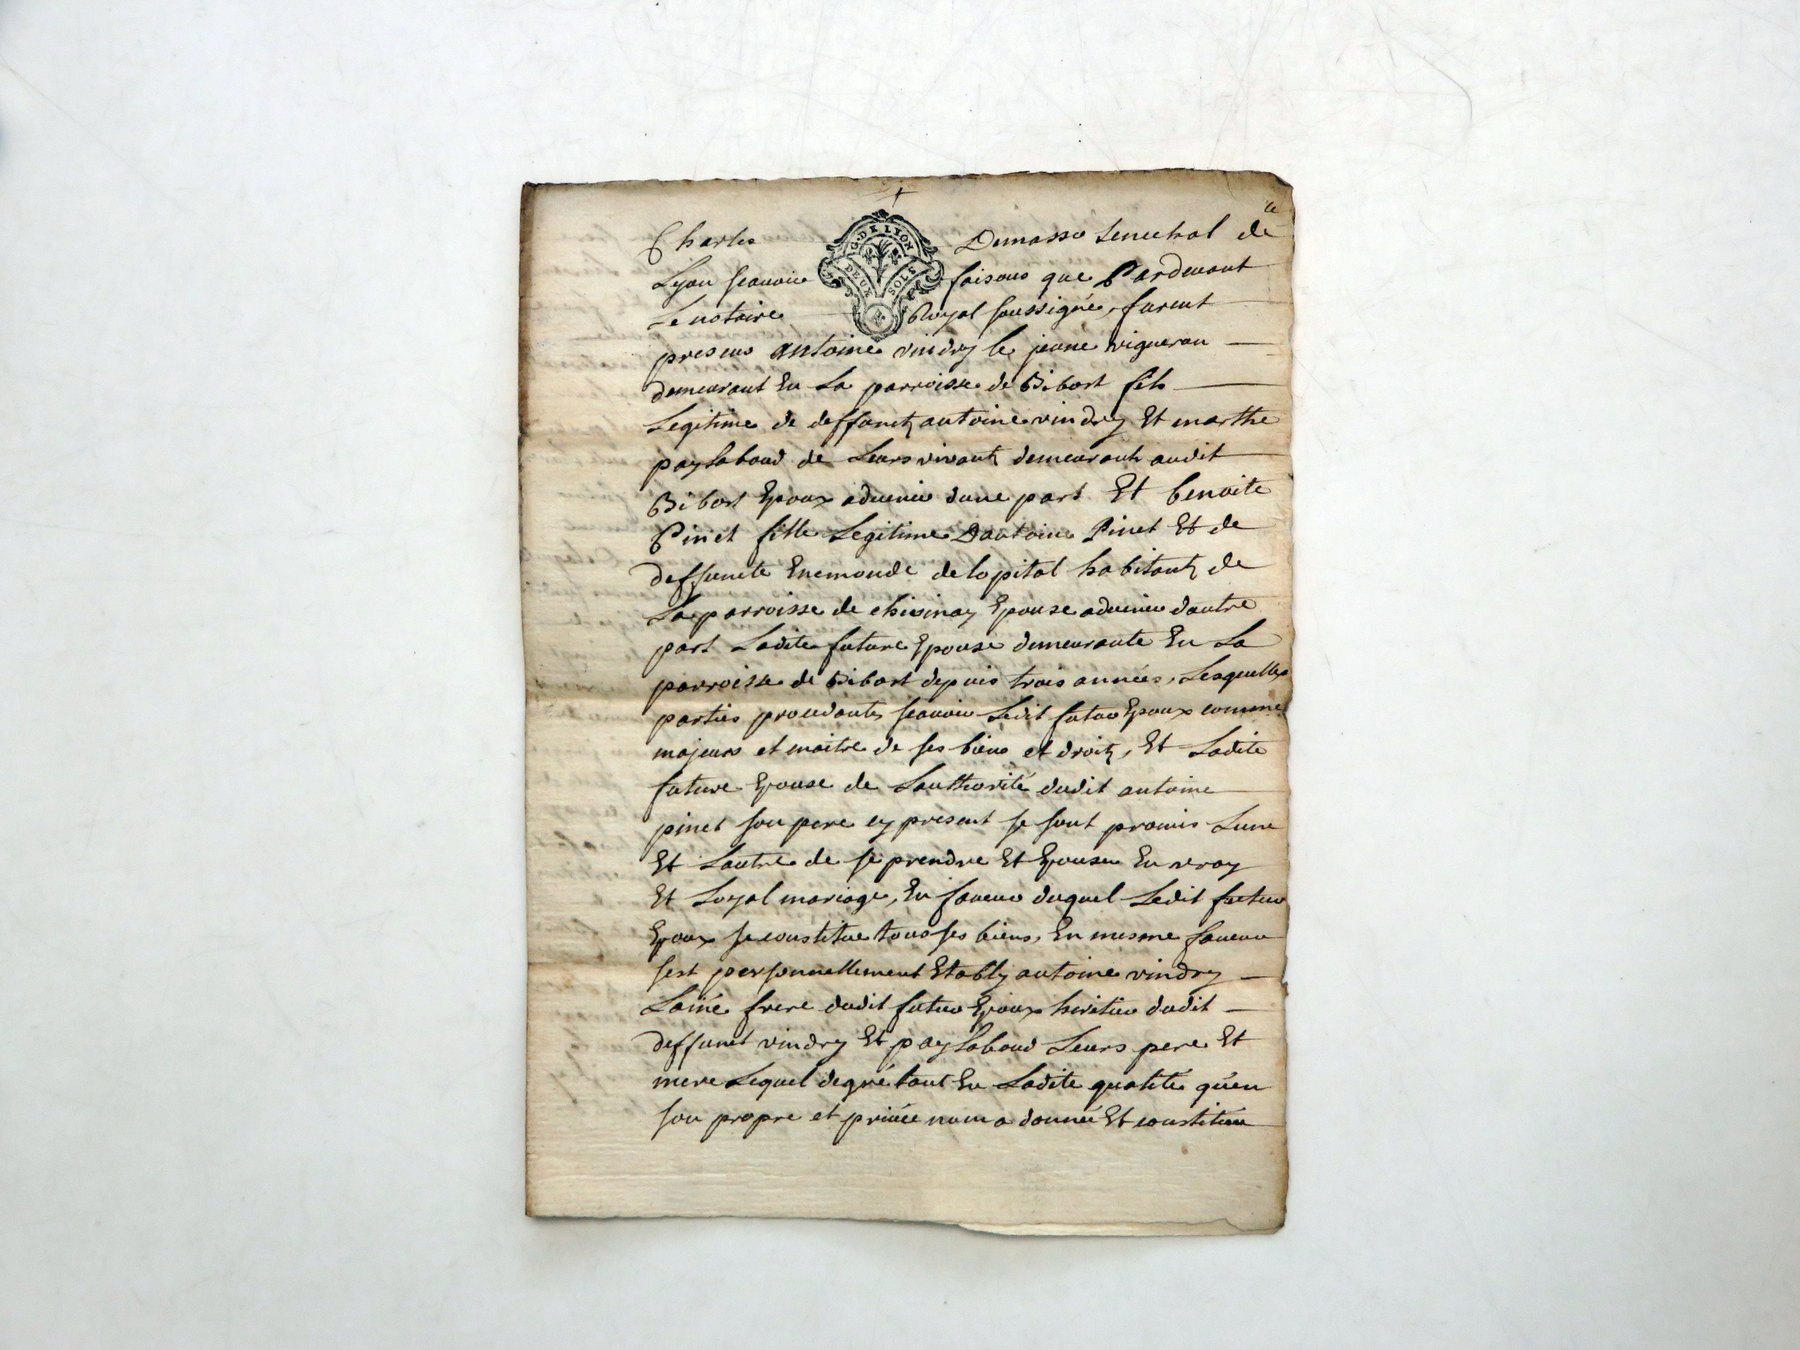 G. DE LYON
DEUX SOLS
Charles Demasso Senechal de
Lyon scavoir faisons que Pardevant
Le notaire Royal soussigné, furent
presens antoine vindry le jeune vigneron
demeurant En La parroisse de Bibost fils
Legitime de deffunctz antoine vindry Et marthe
paylaboud de Leurs vivantz demeurantz audit
Bibost Epoux advenir dune part Et benoite
Pinet fille Legitime Dantoine Pinet Et de
deffuncte Enemonde delopital habitantz de
La parroisse de chivinay Epouse advenir dautre
part Ladite future Epouse demeurante En La
parroisse de Bibost depuis trois années, Lesquelles
parties procedantes scavoir Ledit futur Epoux comme
majeur et maitre de ses biens et droitz, Et Ladite
future Epouse de Lauthorité dudit antoine
pinet son pere cy present se sont promis Lune
Et Lautre de se prendre Et Epouser En vray
Et Loyal mariage, En faveur duquel Ledit futur
Epoux se constitue tous ses biens, En mesme faveur
sest personnellement Etably antoine vindry
Lainé frere dudit futur Epoux heritier dudit
deffunct vindry Et paylaboud Leurs pere Et
mere Lequel degré tant En Ladite qualité qu'en
son propre et privée nom a donné Et constitué